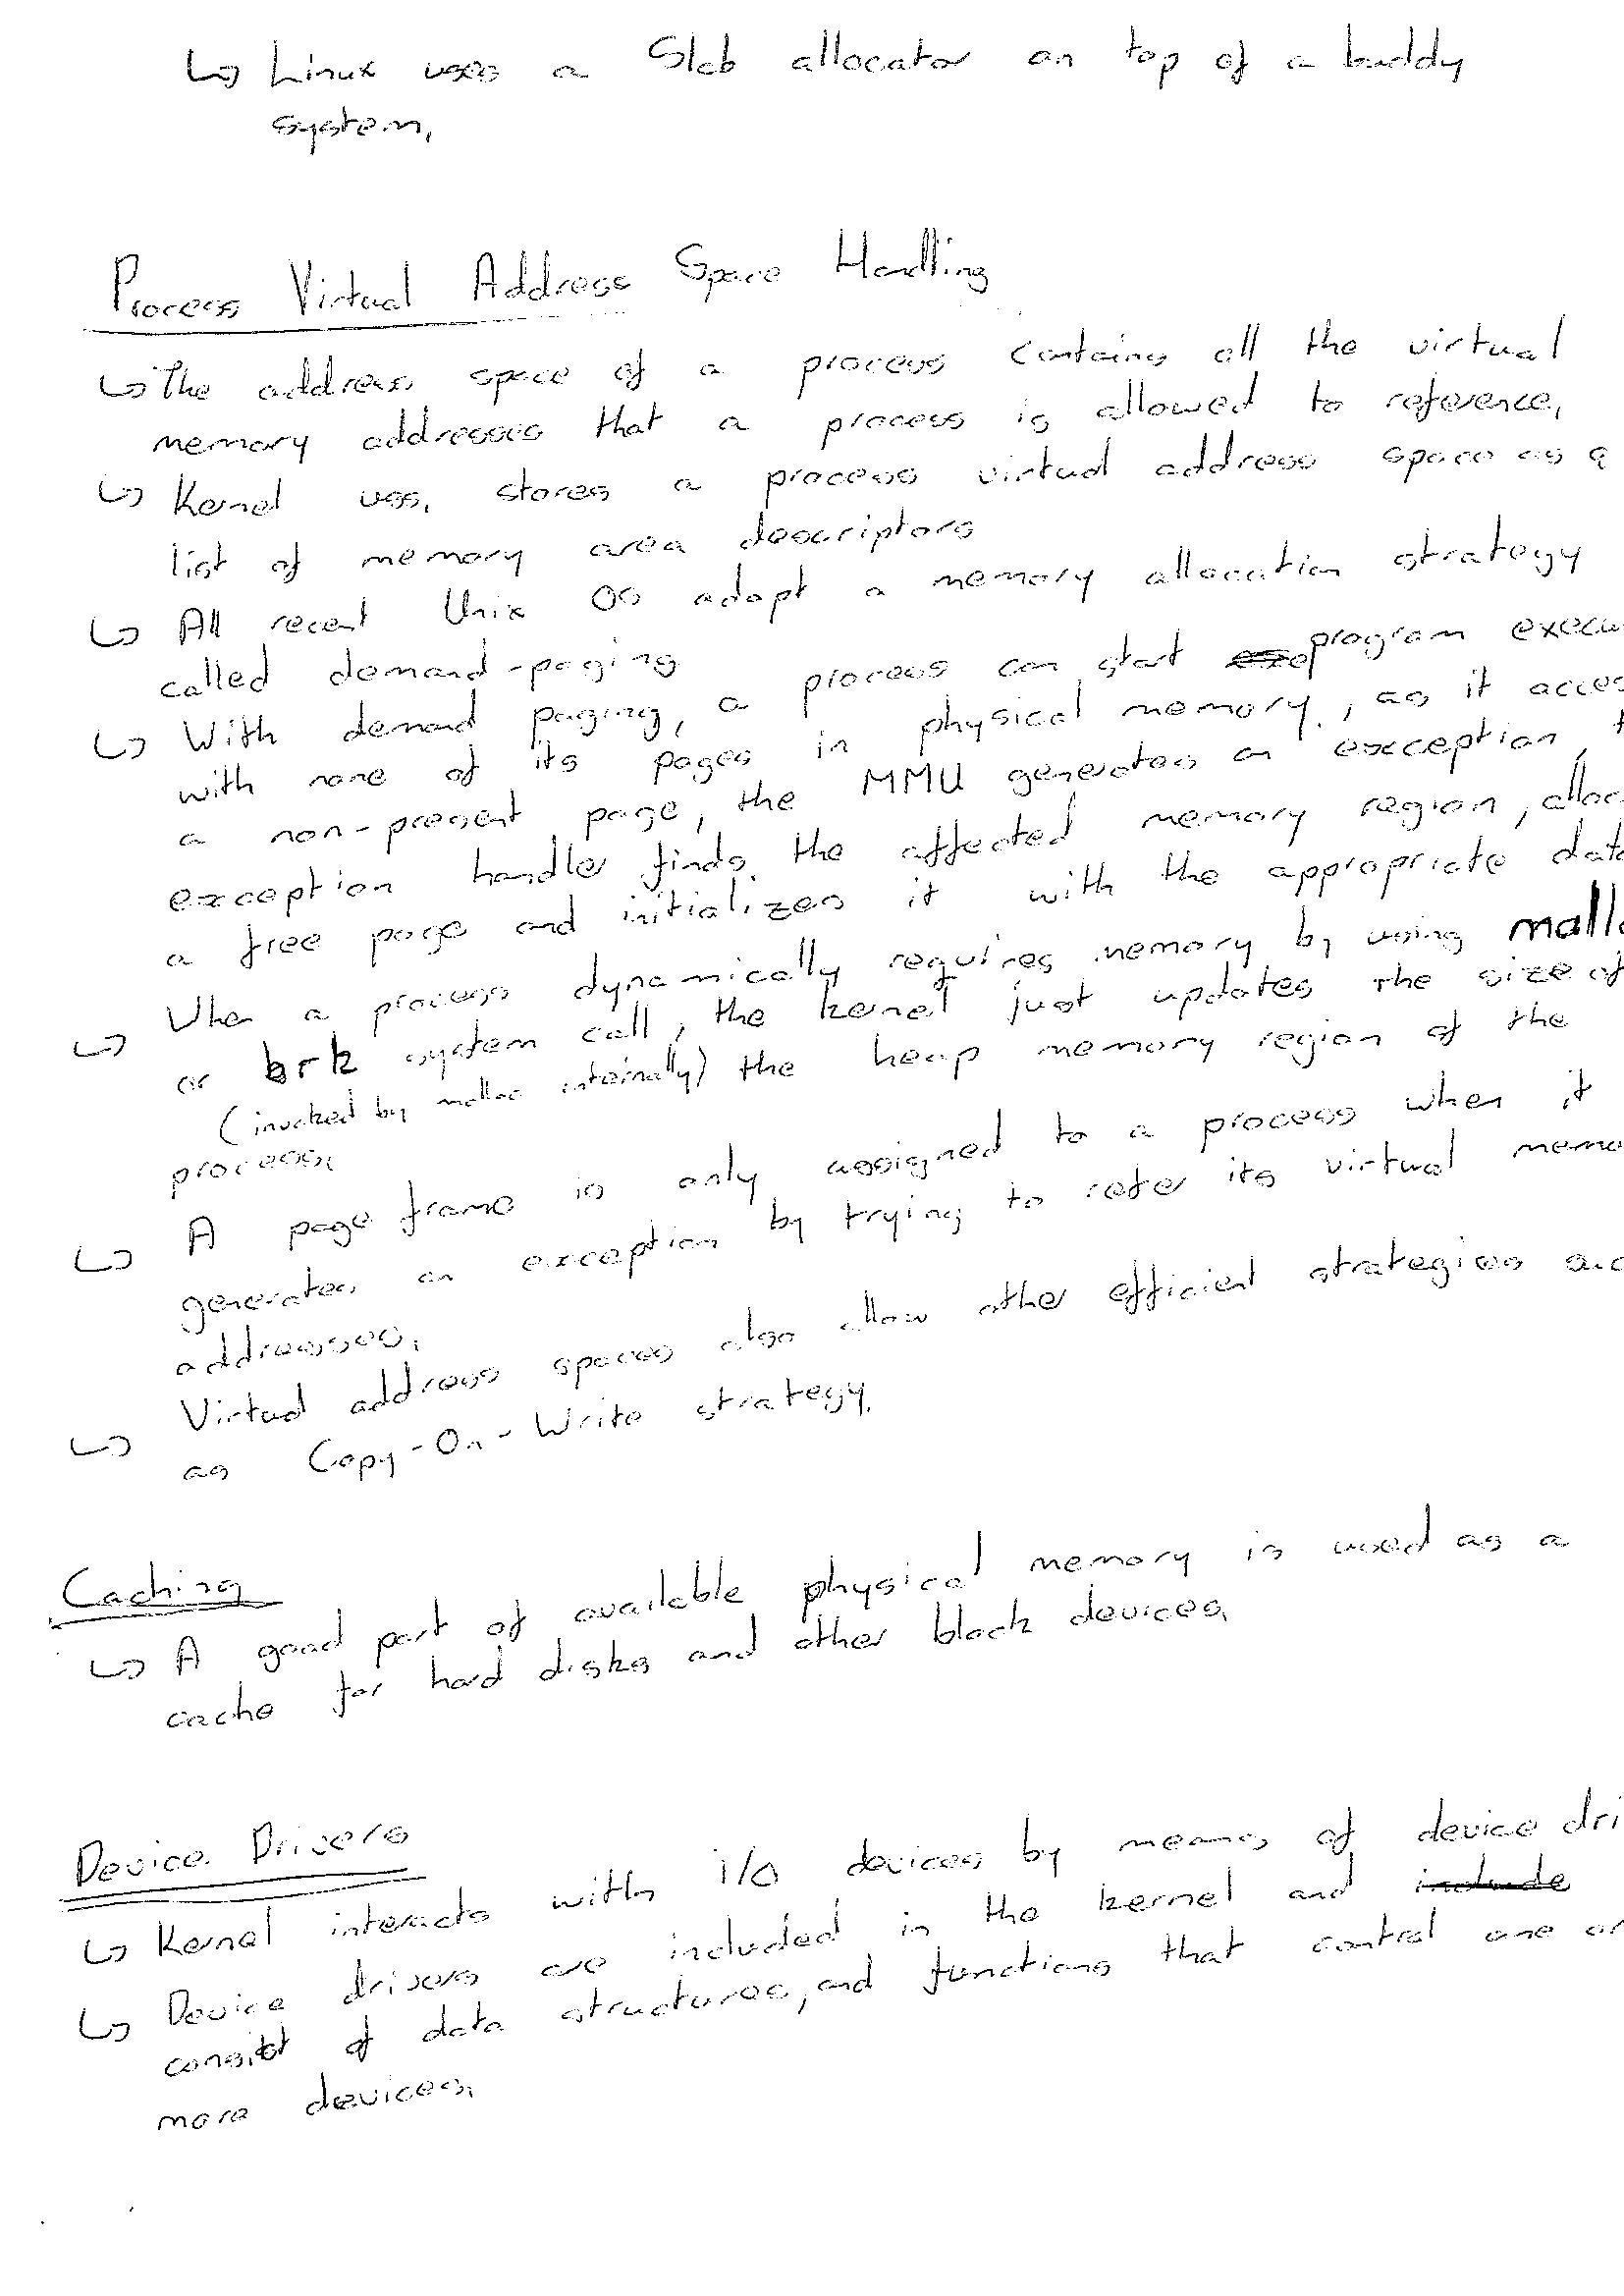 ↳ Linux uses a Slab allocator on top of a buddy
system.
Process Virtual Address Space Handling
↳ The address space of a process contains all the virtual
memory addresses that a process is allowed to reference.
↳ Kernel uss. stores a process virtual address space as a
list of memory area descriptors
↳ All recent Unix OS adopt a memory allocation strategy
called demand-paging
↳ With demand paging, a process can start program execu
with none of its pages in physical memory., as it acces
a non-present page, the MMU generates an exception, t
exception handler finds the affected memory region, alloc
a free page and initializes it with the appropriate data
↳ When a process dynamically requires memory by using mallo
or brk system call, the kernel just updates the size of
(invoked by malloc internally) the heap memory region of the
process.
↳ A page frame is only assigned to a process when it
generates an exception by trying to refer its virtual memo
addresses.
↳ Virtual address spaces also allow other efficient strategies suc
as Copy-On-Write strategy.
Caching
↳ A good part of available physical memory is used as a
cache for hard disks and other block devices.
Device Drivers
↳ Kernel interacts with i/o devices by means of device dri
↳ Device drivers are included in the kernel and include
consist of data structures, and functions that control one or
more devices.